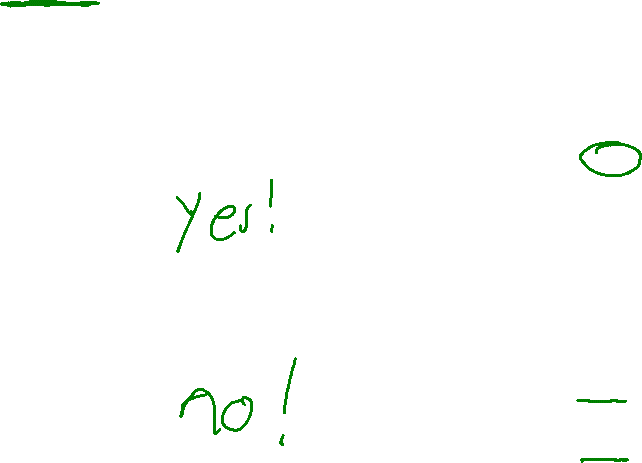 yes!
no!